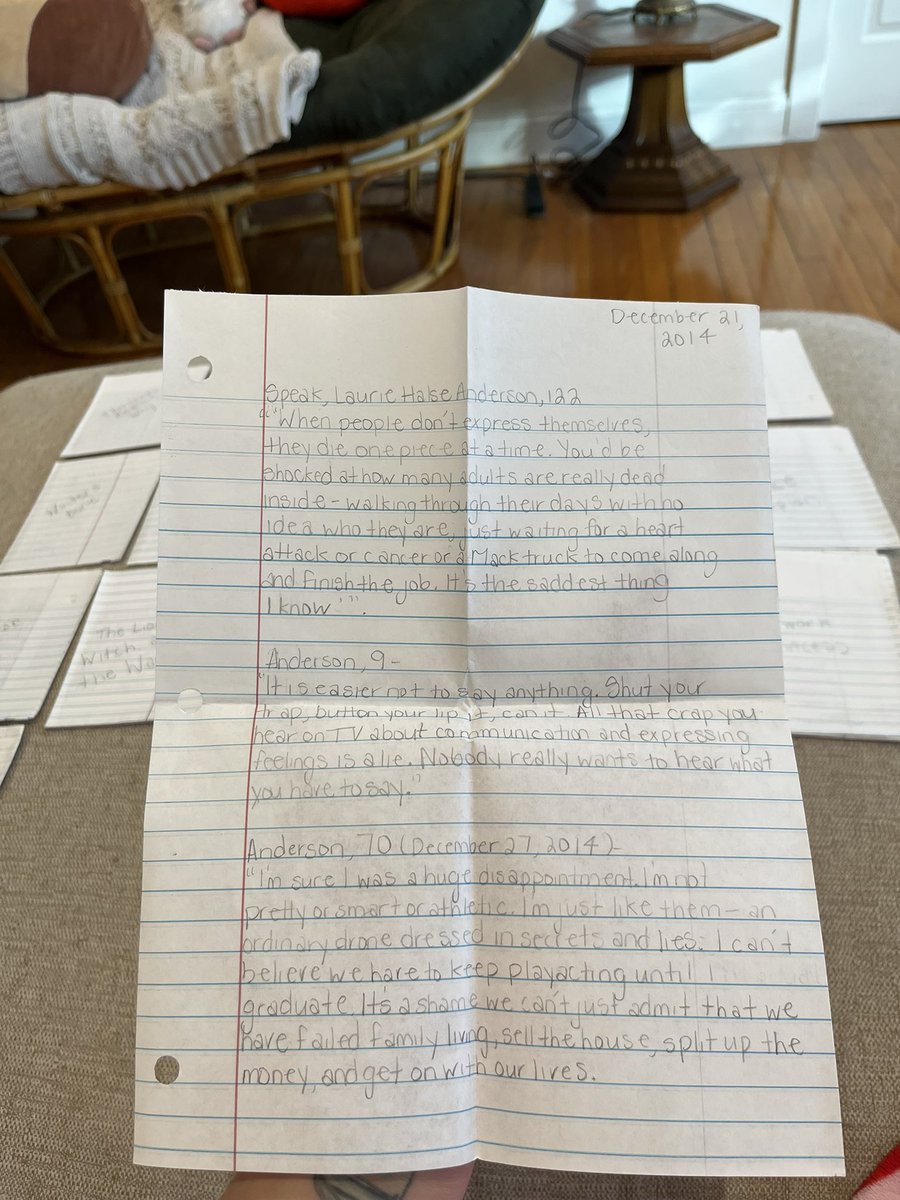 December 21,
2014
Speak, Laurie Halse Anderson, 122
"'When people don't express themselves,
they die one piece at a time. You'd be
shocked at how many adults are really dead
inside - walking through their days with no
idea who they are, just waiting for a heart
attack or cancer or a Mack truck to come along
and finish the job. It's the saddest thing
I know'".
Anderson, 9-
"It is easier not to say anything. Shut your
trap, button your lip, can it. All that crap you
hear on TV about communication and expressing
feelings is a lie. Nobody really wants to hear what
you have to say."
Anderson, 70 (December 27, 2014)-
"I'm sure I was a huge disappointment. I'm not
pretty or smart or athletic. I'm just like them - an
ordinary drone dressed in secrets and lies. I can't
believe we have to keep playacting until I
graduate. It's a shame we can't just admit that we
have failed family living, sell the house, split up the
money, and get on with our lives.
The Lio
Witch,
the Wa